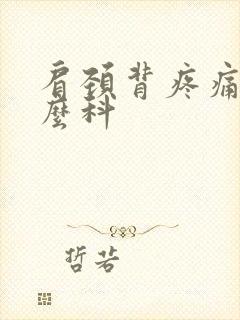 肩颈背疼痛
麼科
哲若